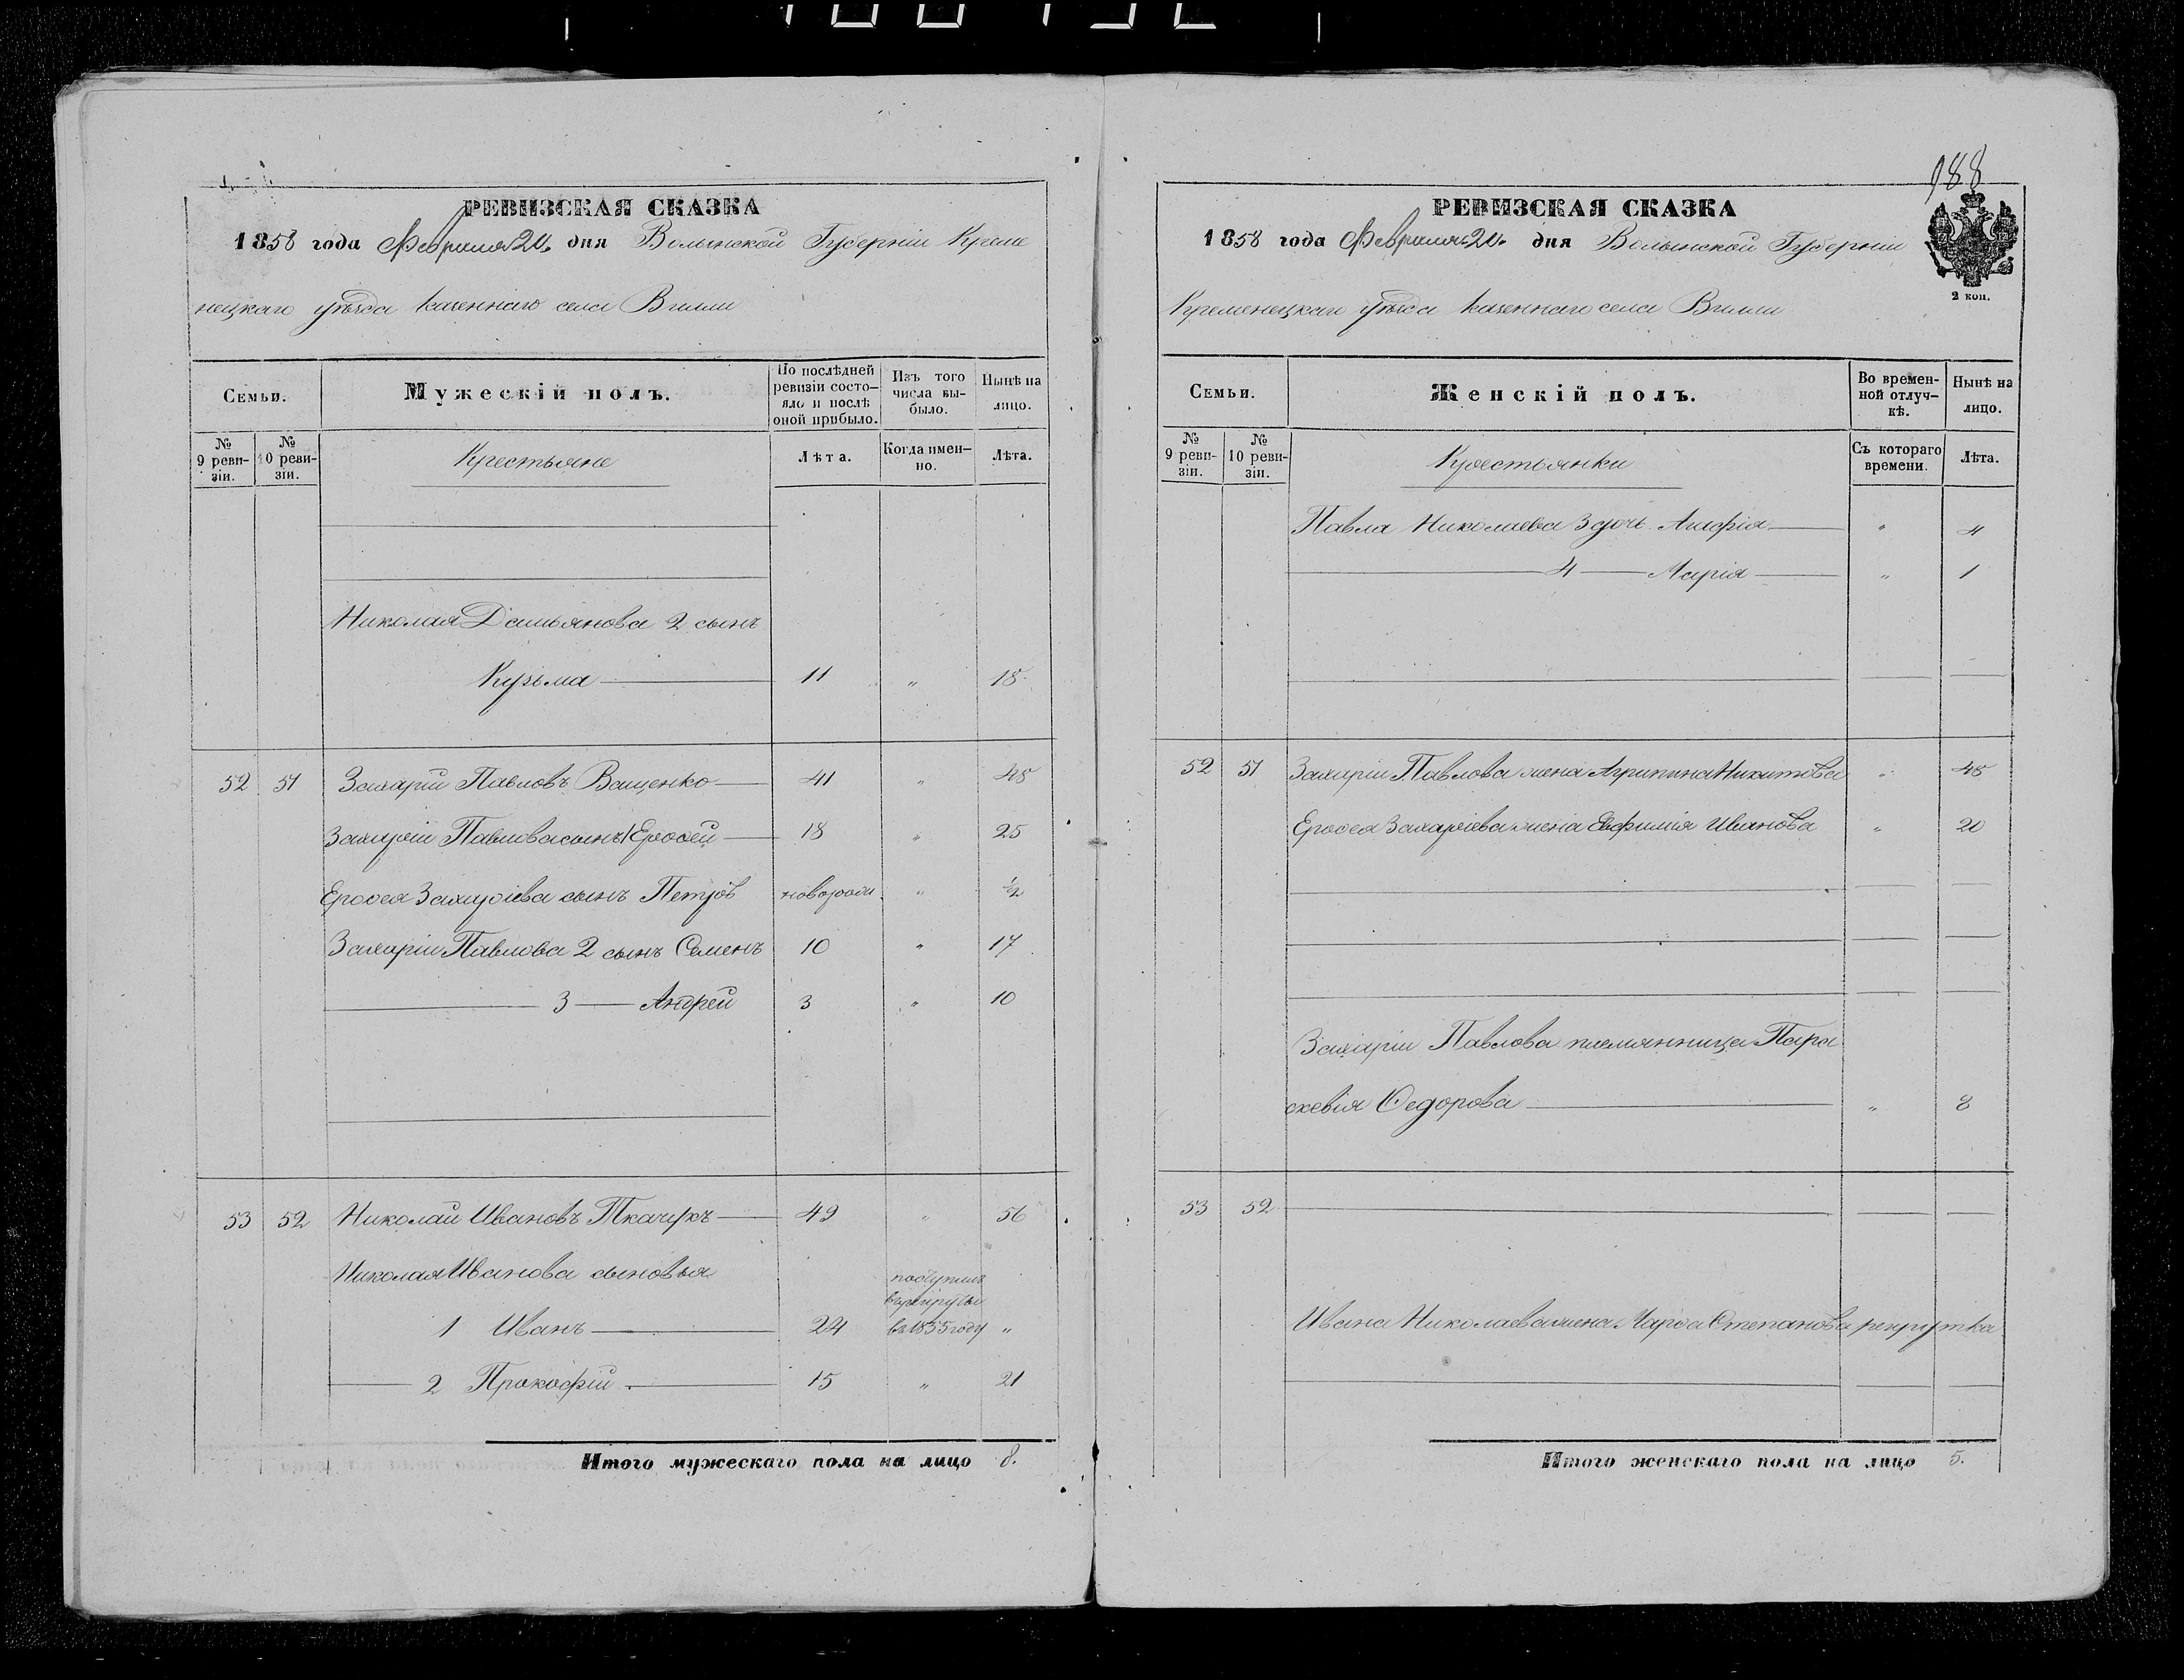 РЕВИЗСКАЯ СКАЗКА
1858 года Февраля 20 дня Волынской Губерніи Креме
нецкаго уѣзда казеннаго села Вилли
Семьи.
Мужескій полъ.
По послѣдней ревизіи состо-
яло и послѣ оной прибыло.
Изъ того числа вы-
было.
Нынѣ на лицо.
№ 9 реви-
зіи.
№ 10 реви-
зіи.
Крестьяне
Лѣта.
Когда имен-
но.
Лѣта.
Николая Дамьянова 2 сынъ
Кузьма 11 " 18
52 51 Захарій Павловъ Ващенко 41 " 48
Захарія Павлова сынъ 1 Ерофей 18 " 25
Ерофея Захаріева сынъ Петръ новорож " ½
Захарія Павлова 2 сынъ Семенъ 10 " 17
3 Андрей 3 " 10
53 52 Николай Ивановъ Ткачукъ 49 " 56
Николая Иванова сыновья
поступилъ
въ рекруты
1 Иванъ 22 въ 1855 году "
2 Прокофій 15 " 21
Итого мужескаго пола на лицо 8.
188
РЕВИЗСКАЯ СКАЗКА
1858 года Февраля 20 дня Волынской Губерніи
2 коп.
Кременецкаго уѣзда казеннаго села Вилли
Семьи.
Женскій полъ.
Во времен-
ной отлуч-
кѣ.
Нынѣ на лицо.
№ 9 реви-
зіи.
№ 10 реви-
зіи.
Крестьянки
Съ котораго времени.
Лѣта.
Павла Николаева 3 дочь Агафія " 4
4 Марія " 1
52 51 Захарія Павлова жена Агрипина Никитова " 45
Ерофея Захаріева жена Евфимія Иванова " 20
Захарія Павлова племянница Пара
скевія Федорова " 8
53 52
Ивана Николаева жена Марфа Степанова рекрутка
Итого женскаго пола на лицо 5.